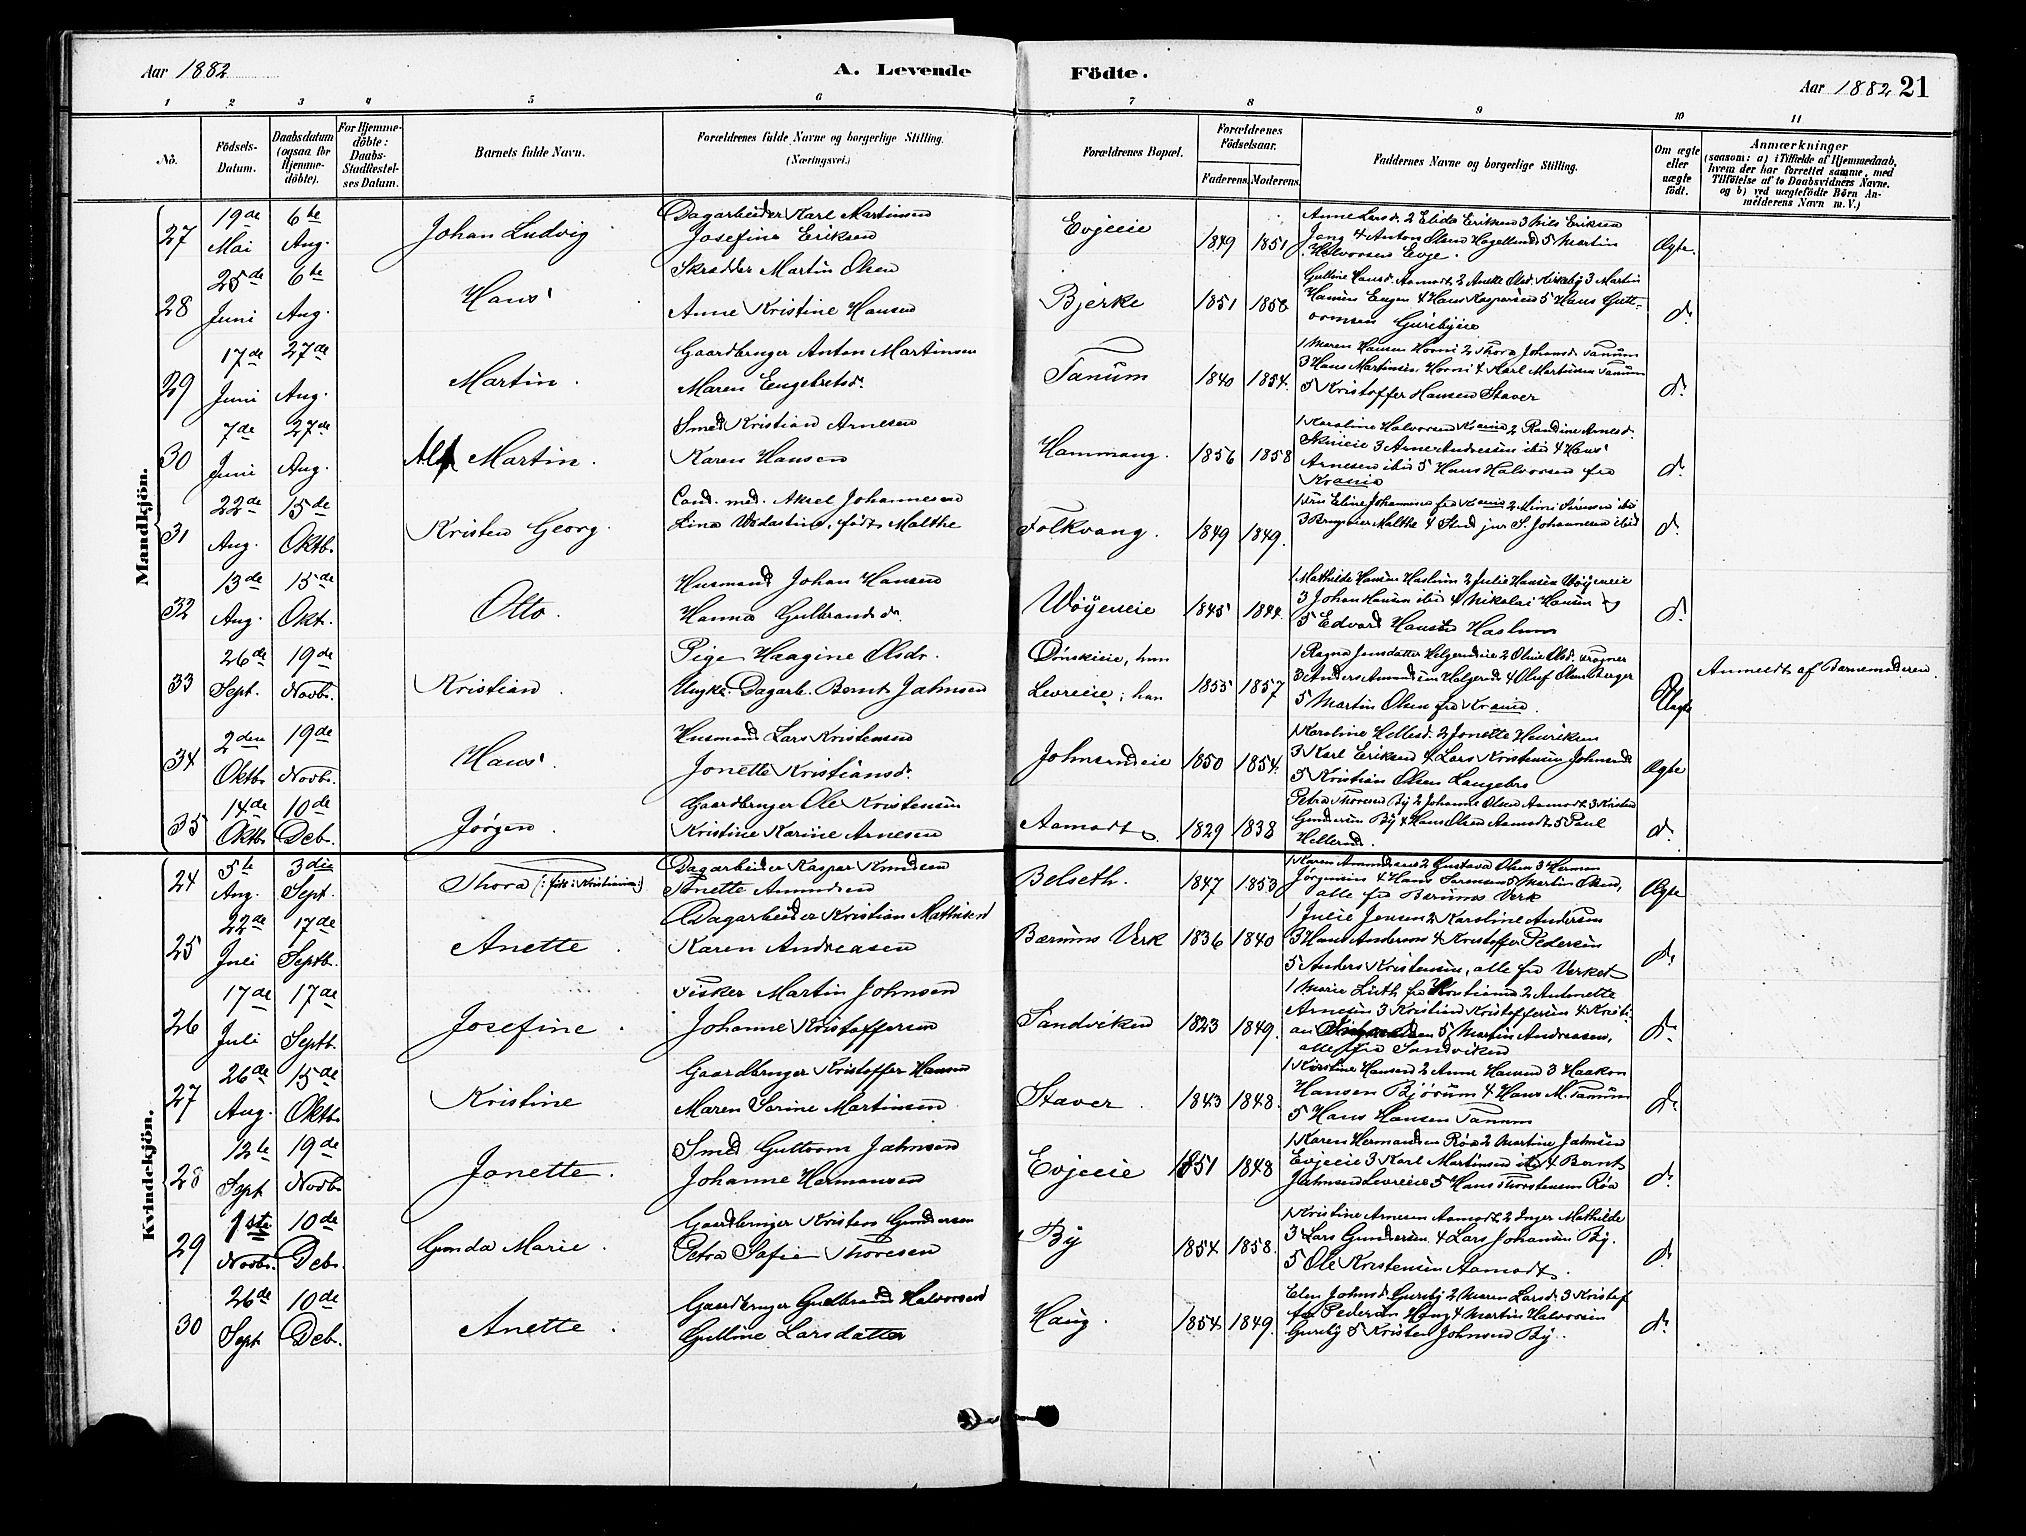 Aar 1882
A. Levende
Födte.
Aar 1882 21
1 2 3 4 5 6 7 8 9 10 11
No.
Födsels-Datum.
Daabsdatum (ogsaa for Hjemme-döbte).
For Hjemme-döbte: Daabs-Stadfæstel-ses Datum.
Barnets fulde Navn.
Forældrenes fulde Navne og borgerlige Stilling.
(Næringsvei.)
Forældrenes Bopæl.
Forældrenes Födselsaar.
Faderens. Moderens.
Faddernes Navne og borgerlige Stilling.
Om ægte eller uægte födt.
Anmærkninger
(saasom: a) i Tilfælde af Hjemmedaab,
hvem der har forrettet samme, med
Tilföielse af to Daabsvidners Navne.
og b) ved uægtefödte Börn An-
melderens Navn m. V.)
Mandkjön.
27 19de Mai 6te Aug. Johan Ludvig Dagarbeider Karl Martinsen
Josefine Eriksen Evjeeie 1849 1851 Ægte.
Anne Larsd. 2 Elida Eriksen 3 Nils Eriksen
Jong 4 Anton Olsen Hagelund 5 Martin
Halvorsen Evje.
28 25de Juni 6te Aug. Hans Skrædder Martin Olsen
Anne Kristine Hansen Bjerke 1851 1858 do.
Gulline Hansd. Aamodt 2 Anke Olsd. Kirkeby 3 Martin
Hansen Engen 4 Hans Kaspersen 5 Hans Gutt-
ormsen Gurebyeie
29 17de Juni 27de Aug. Martin. Gaardbruger Anton Martinsen
Maren Engebretsd. Tanum 1840 1854. do.
1 Maren Hansen Horni 2 Thora Johansd. Tanum
3 Hans Martinsen Horni 4 Karl Martinsen Tanum
5 Kristoffer Hansen Staver
30 7de Juni 27de Aug. Alf Martin. Smed Kristian Arnesen
Karen Hansen Hammang. 1856 1858 do.
1 Karoline Halvorsen Krania 2 Randine Arnesd.
Skuieie 3 Arne Andressen ibid 4 Hans
Arnesen ibid 5 Hans Halvorsen fra
Krania
31 22de Aug. 15de Oktb. Kristen Georg. Cand. med. Aksel Johannesen
Lina Vedastine, født Malthe Folkvang. 1849 1849. do.
1 Fru Eline Johannesen fra Krania 2 Mimi Sørensen ibid
3 Brugseier Malthe 4 Stud jur S. Johannesen ibid
32 13de Aug. 15de Okt. Otto. Husmand Johan Hansen
Hanna Gulbrandsdr. Wøyeneie 1845 1844. do.
1 Mathilde Hansen Haslum 2 Julie Hansen Wøyeneie
3 Johan Hansen ibid 4 Nikolai Hansen og
5 Edvard Hansen Haslum
33 26de Sept. 19de Novbr. Kristian. Pige Haagine Olsdr.
Ungkr. Dagarb. Bernt Jahnsen Dønskieie, hun
Levreeie, han 1855 1857 Uægte Anmeldt af Barnemoderen.
1 Ragna Jensdatter Helgerudeie 2 Oline Olsd. Frogner
3 Anders Amundsen Helgerud 4 Oluf Olsen Berger
5 Martin Olsen fra Krania.
34 2den Oktb. 19de Novbr. Hans. Husmand Lars Kristensen
Jonette Kristiansd. Johnsrudeie 1850 1854. Ægte
1 Karoline Hellesd. 2 Jonette Henriksen
3 Karl Eriksen 4 Lars Kristensen Johnsrud
5 Kristian Olsen Langebro
35 14de Oktb. 10de Deb. Jørgen. Gaardbruger Ole Kristensen
Kristine Karine Arnesen Aamodt. 1829 1838 do.
Petra Thoresen By 2 Johanne Olsen Aamodt 3 Kristen
Gundersen By 4 Hans Olsen Aamodt 5 Paul
Hellerud.
Kvindekjön.
24 5te Aug. 3die Sept. Thora (: født i Kristiania :) Dagarbeider Kaspar Knudsen
Anette Amundsen Belseth. 1847 1853 Ægte
1 Karen Amundsens 2 Gustava Olsen 3 Herman
Jørgensen 4 Hans Sørensen 5 Martin Olsen,
alle fra Bærums Verk
25 22de Juli 17de Septb. Anette. Dagarbeider Kristian Mathisen
Karen Andreasen Bærums Verk 1836 1840 do.
1 Julie Jensen 2 Karoline Andersen
3 Hans Andersen 4 Kristoffer Pedersen
5 Anders Kristensen, alle fra Verket
26 17de Juli 17de Septb. Josefine. Fisker Martin Johnsen
Johanne Kristoffersen Sandviken 1823 1849. do.
1 Marie Lüth fra Kristiania 2 Antonette
Arnesen 3 Kristian Kristoffersen 4 Kristi-
an 5 Martin Andreasen,
alle fra Sandviken
27 26de Aug. 15de Oktb. Kristine Gaardbruger Kristoffer Hansen
Maren Sørine Martinsen Staver. 1843 1848. do.
1 Kirstine Hansen 2 Anne Hansen 3 Haakon
Hansen Bjørum 4 Hans M. Tanum
5 Hans Hansen Tanum
28 12te Sept 19de Novb. Jonette. Smed Guttorm Jahnsen
Johanne Hermansen Evjeeie 1851 1848 do.
1 Karen Hermandsen Røa 2 Martine Jahnsen
Evjeeie 3 Karl Martinsen ibid 4 Bernt
Jahnsen Levreeie 5 Hans Thorstensen Røa
29 1ste Novbr. 10de Deb. Gunda Marie. Gaardbruger Kristen Gundersen
Petra Sofie Thoresen By 1854 1858. do.
1 Kristine Arnesen Aamodt 2 Inger Mathilde
3 Lars Gundersen 4 Lars Johansen By.
5 Ole Kristensen Aamodt.
30 26de Sept 10de Deb. Anette. Gaardbruger Gudbrand Halvorsen
Gulline Larsdatter Haug. 1854 1849. do.
Elen Johnsd. Gureby 2 Maren Larsd. 3 Kristof
fer Pedersen Haug 4 Martin Halvorsen
Gureby 5 Kristen Johnsen By.